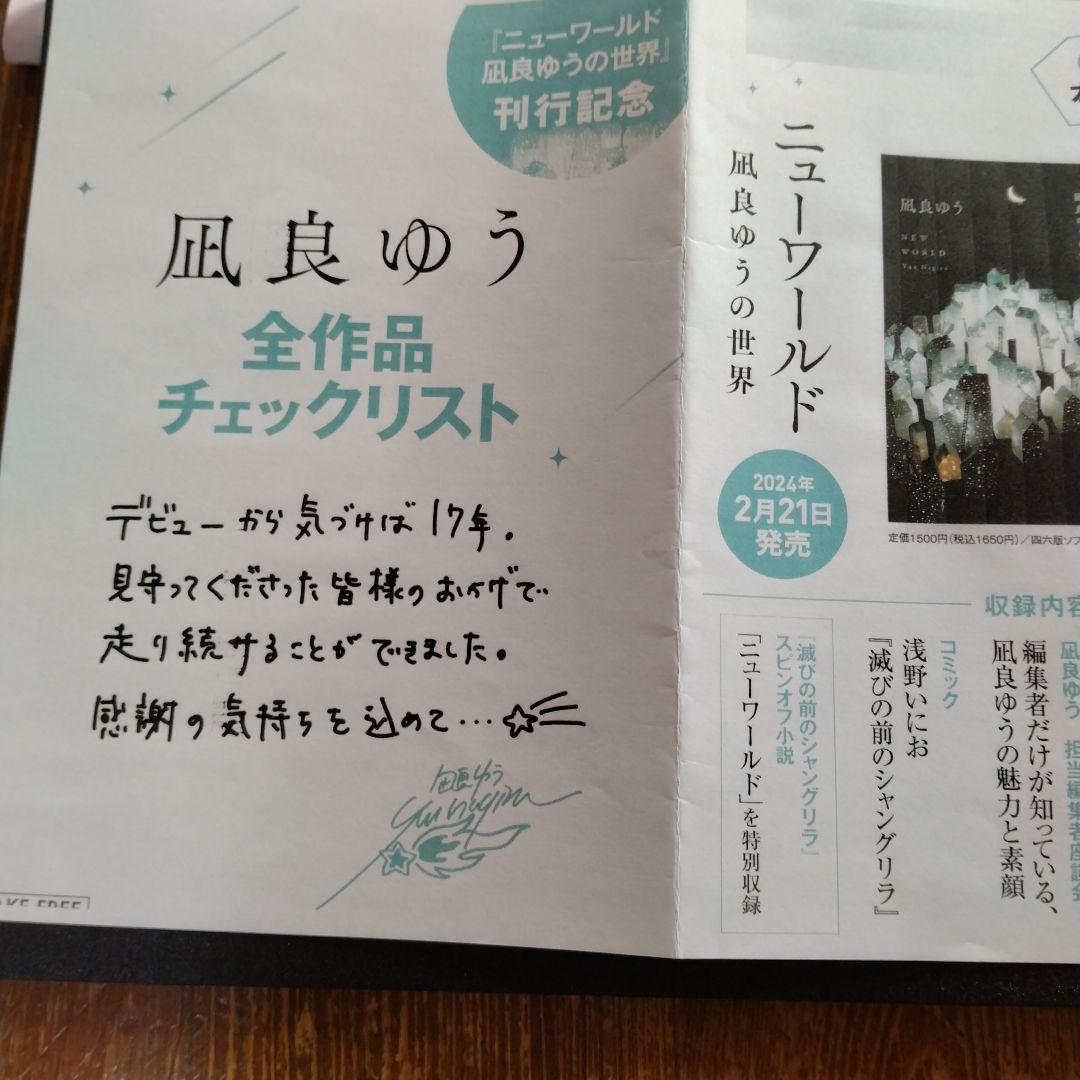 『ニューワールド
凪良ゆうの世界』
刊行記念
凪良ゆう
全作品
チェックリスト
デビューから気づけば17年。
見守ってくださった皆様のおかげで
走り続けることができました。
感謝の気持ちを込めて…
凪良ゆう
ニューワールド
凪良ゆうの世界
2024年
2月21日
発売
凪良ゆう
NEW
WORLD
Yuu Nagira
定価1500円(税込1650円)/四六版ソフ
収録内容
凪良ゆう 担当編集者座談会
編集者だけが知っている、
凪良ゆうの魅力と素顔
コミック
浅野いにお
『滅びの前のシャングリラ』
『滅びの前のシャングリラ』
スピンオフ小説
「ニューワールド」を特別収録